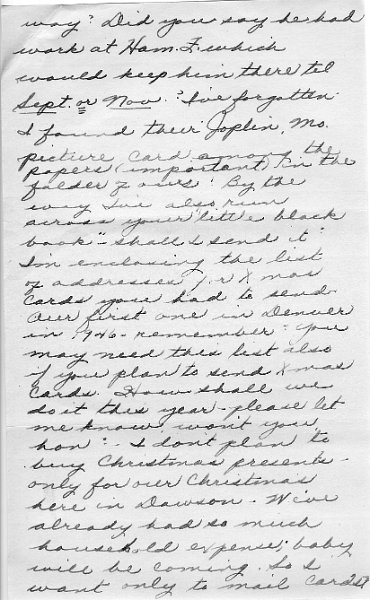 way? Did you say he had
work at Ham. F. which
would keep him there til
Sept. or Nov.? I've forgotten.
I found their Joplin, Mo.
picture card among the
papers (important) in the
folder of ours. By the
way I've also run
across your little black
book - shall I send it?
I'm enclosing the list
of addresses for Xmas
cards you had to send
our first one in Denver
in 1946 - remember? You
may need this list also
if you plan to send Xmas
cards. How shall we
do it this year - please let
me know, won't you
hon? - I dont plan to
buy Christmas presents -
only for our Christmas
here in Dawson. We've
already had so much
household expense; baby
will be coming. So I
want only to mail cards